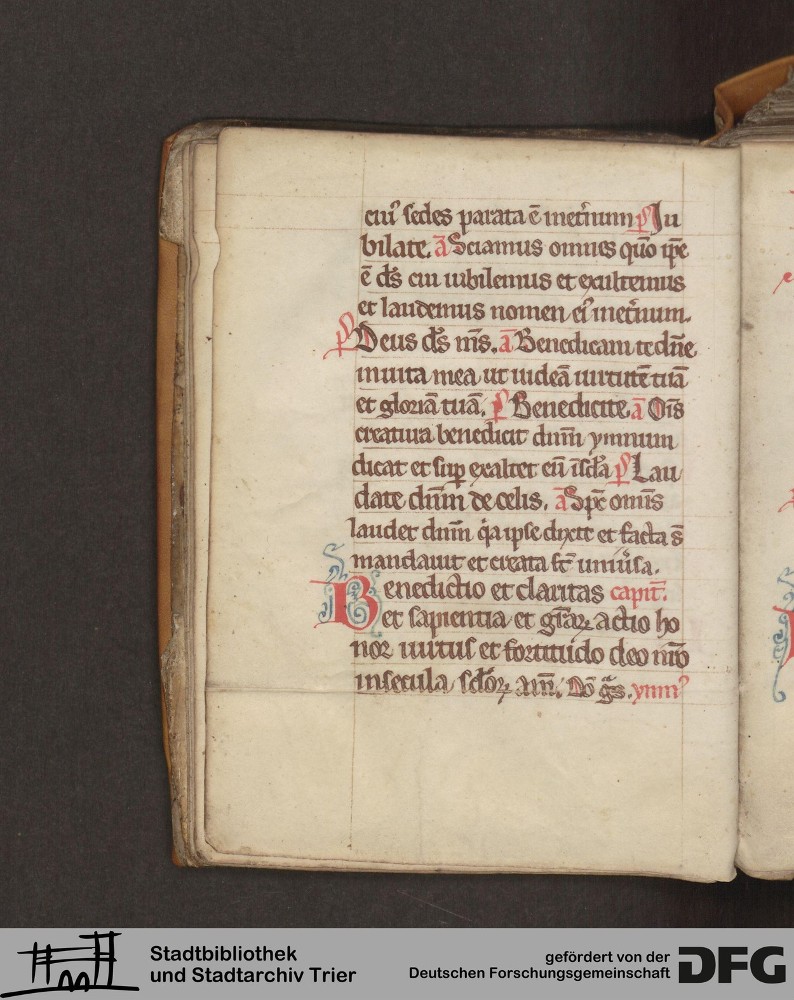 cui᷒ sedes parata ē inet̄num p̄s Ju
bilate. ā Sciamus omnes quō ip̄e
ē ds̄ cui iubilemus et exultemus
et laudemus nomen ei᷒ inet̄num.
p̄s Deus ds̄ ms̄. ā Benedicam te dn̄e
in uita mea ut uideā uirtutē tuā
et gloriā tuā. p̄s Benedicite. ā Oīs
creatura benedicit dnm̄ ymnum
dicat et sup̄ exaltet eū ī scl̄a p̄s Lau
date dnm̄ de celis. ā Spc̄ omnis
laudet dnm̄ q̇a ipse dixit et facta s̄
mandauit et creata st̄ uniū̓sa.
Benedictio et claritas capit̄.
et sapientia et gr̄aꝝ actio ho
nor uirtus et fortitudo deo nr̄o
in secula scl̄oꝝ am̄. Dō gr̄s. ymn᷒
Stadtbibliothek
und Stadtarchiv Trier
gefördert von der
Deutschen Forschungsgemeinschaft
DFG